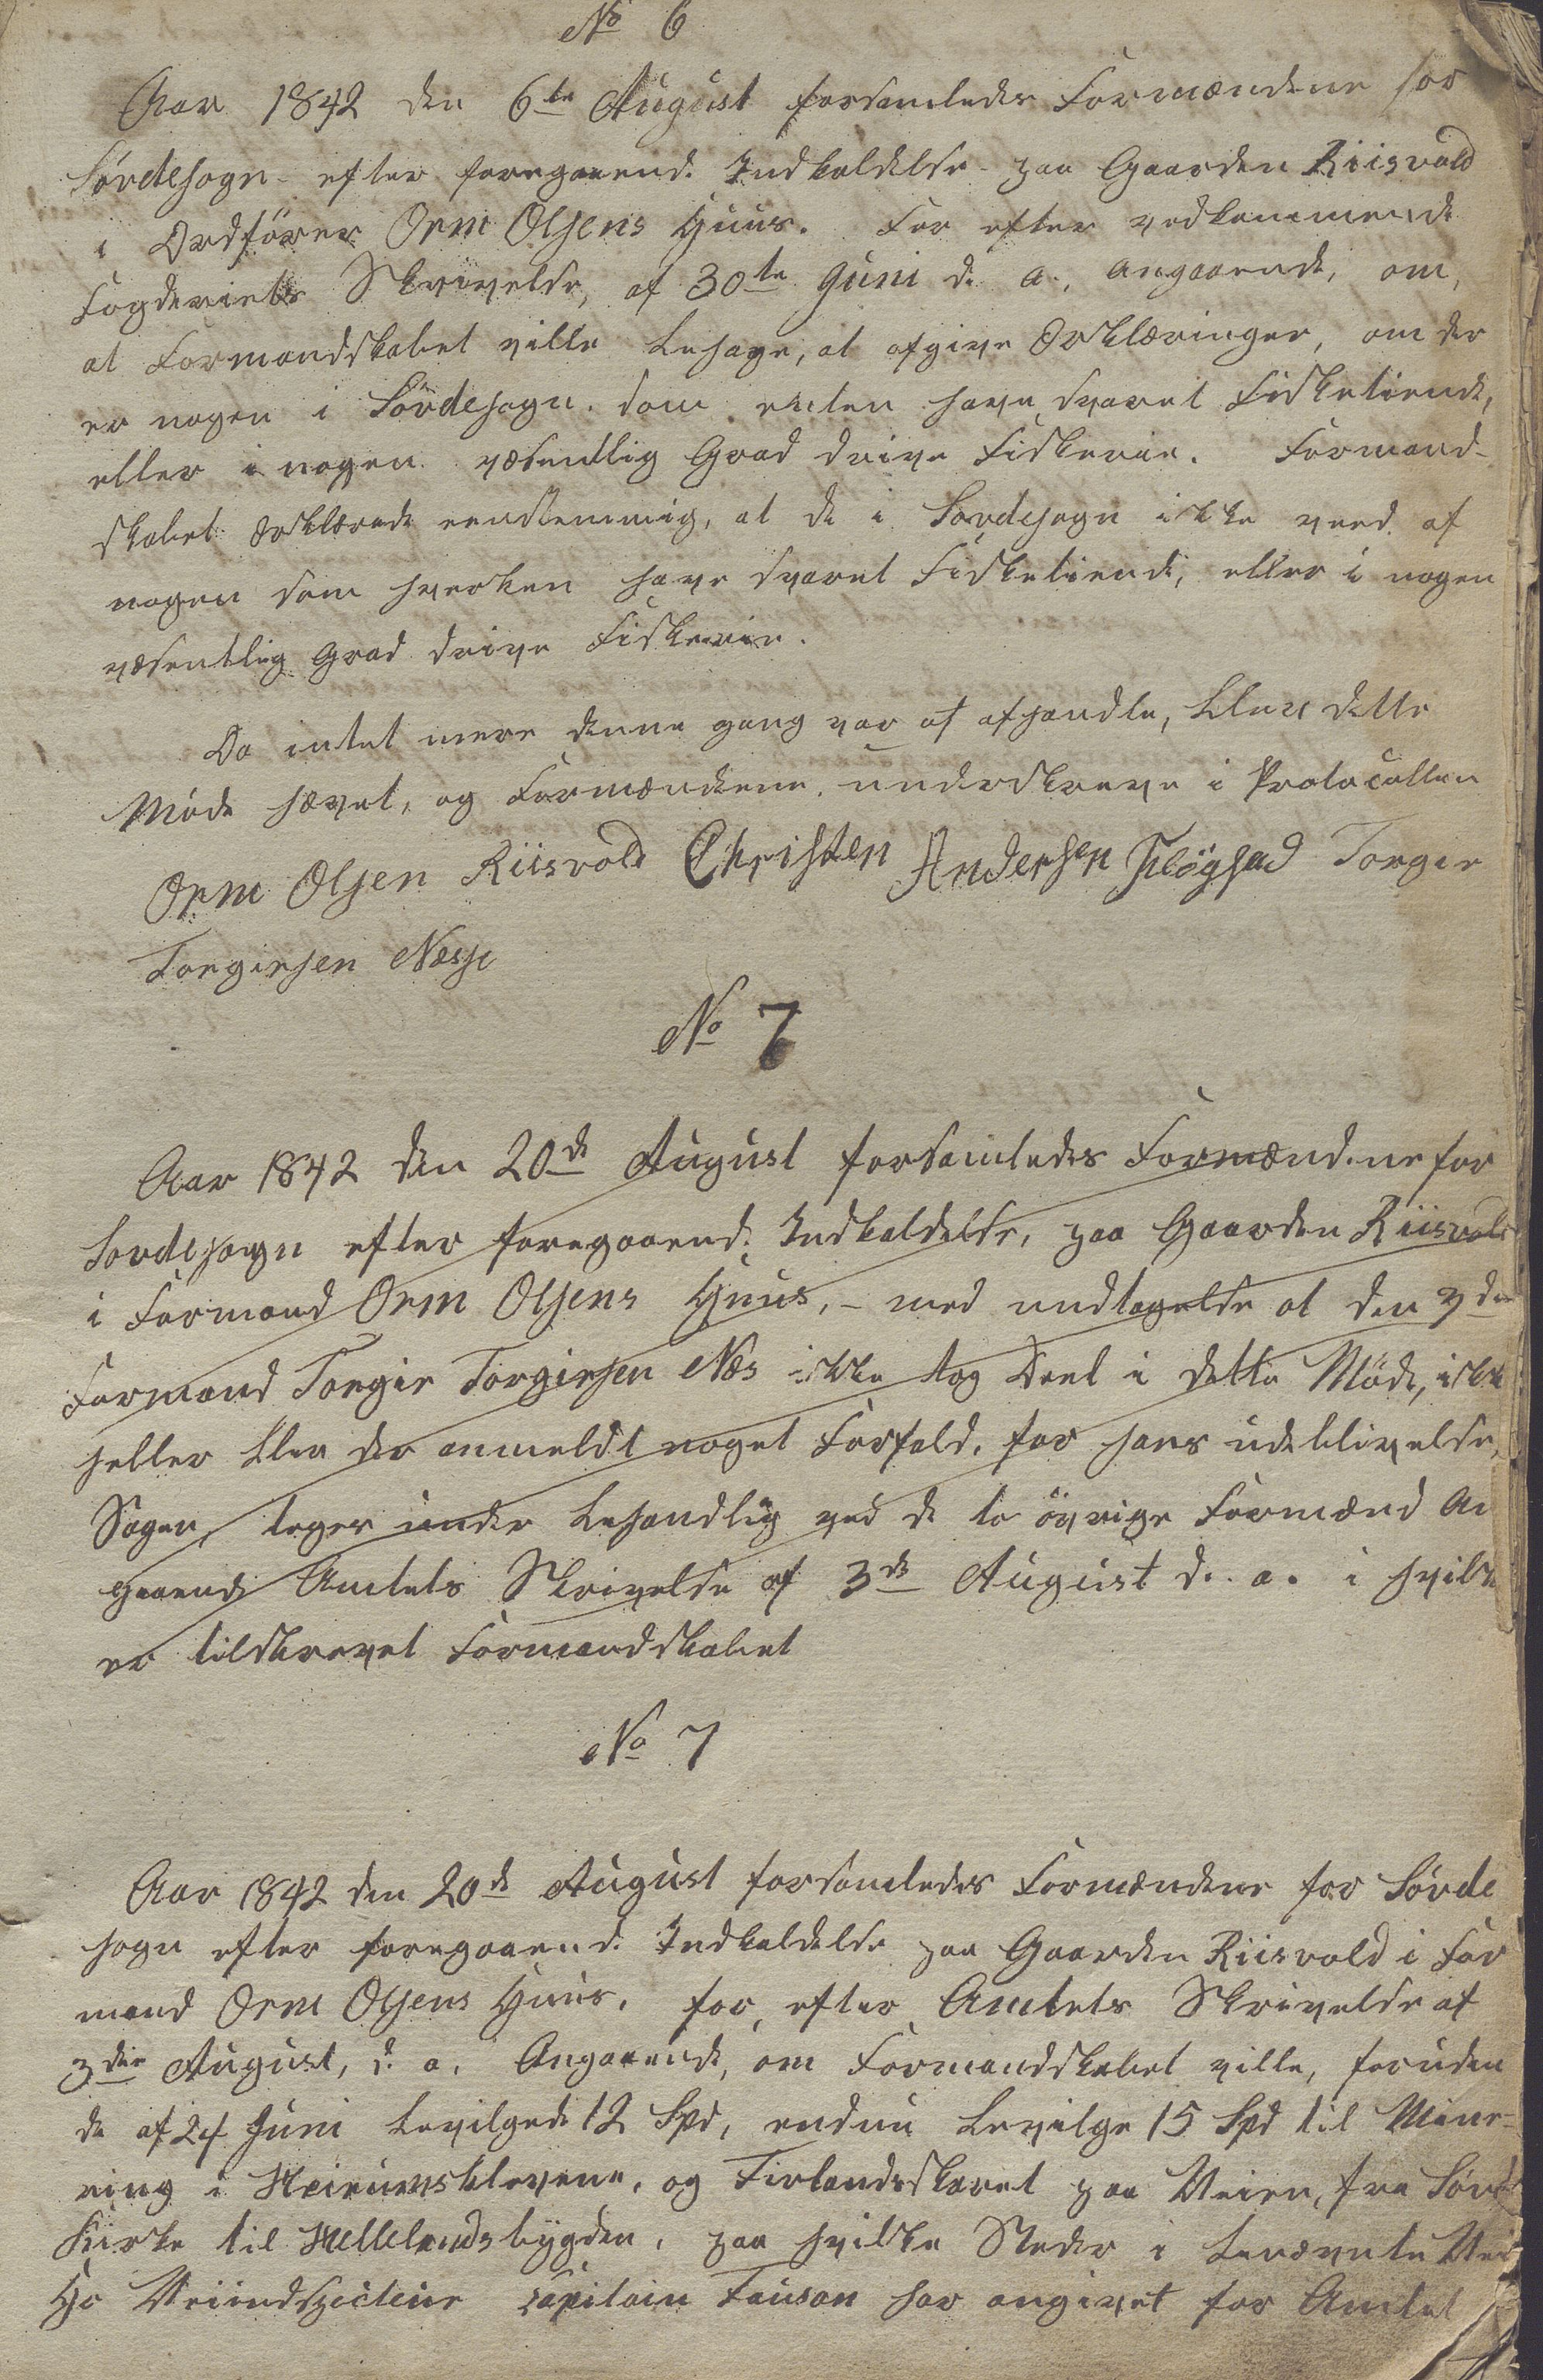 No 6
Aar 1842 den 6te August forsamledes Formændene for
Sørdesogn efter foregaaende Indkaldelse paa Gaarden Riisvold
i Ordfører Orm Olsens Huus. For efter vedkommende
Fogderiets Skrivelse, af 30te Juni d. a. angaaende, om,
at Formandskabet ville behage, at afgive Erklæringer, om der
er nogen i Sørdesogn som enten have svaret Fisketiende,
eller i nogen væsentlig Grad drive Fiskerie. Formand-
skabet erklærede eenstemmig, at de i Sørdesogn ikke veed af
nogen som hverken have svaret Fisketiende, eller i nogen
væsentlig Grad drive Fiskerie.
Da intet mere denne gang var at afhandle, blev dette
Møde hævet, og Formændene underskreve i Protocollen
Orm Olsen Riisvold Christen Andersen Fløgstad Torger
Torgersen Nesse
No 7
Aar 1842 den 20de August forsamledes Formændene for
Sørdesogn efter foregaaende Indkaldelse, paa Gaarden Riisvold
i Formand Orm Olsens Huus, – med undtagelse at den 3die
Formand Torger Torgersen Næs ikke tog Deel i dette Møde, ikke
heller blev der anmeldt noget Forfald, for hans udeblivelse,
Sagen, toges under behandlig ved de to øvrige Formænd An
gaaende Amtets Skrivelse af 3de August d. a. i hvilke
er tilskrevet Formandskabet
No 7
Aar 1842 den 20de August forsamledes Formændene for Sørde
sogn efter foregaaende Indkaldelse paa Gaarden Riisvold i For
mand Orm Olsens Huus, for, efter Amtets Skrivelse af
3die August, d. a. Angaaende, om Formandskabet ville, foruden
de af 24 Juni bevilgede 12 Spd, endnu bevilge 15 Spd til Mine-
ring i og paa Veien, fra Sørde
Kirke til Hellelandsbygden, paa hvilke Steder i benævnte Vei
Hr Veiinspecteur Capitain Fauson har angivet for Amtet